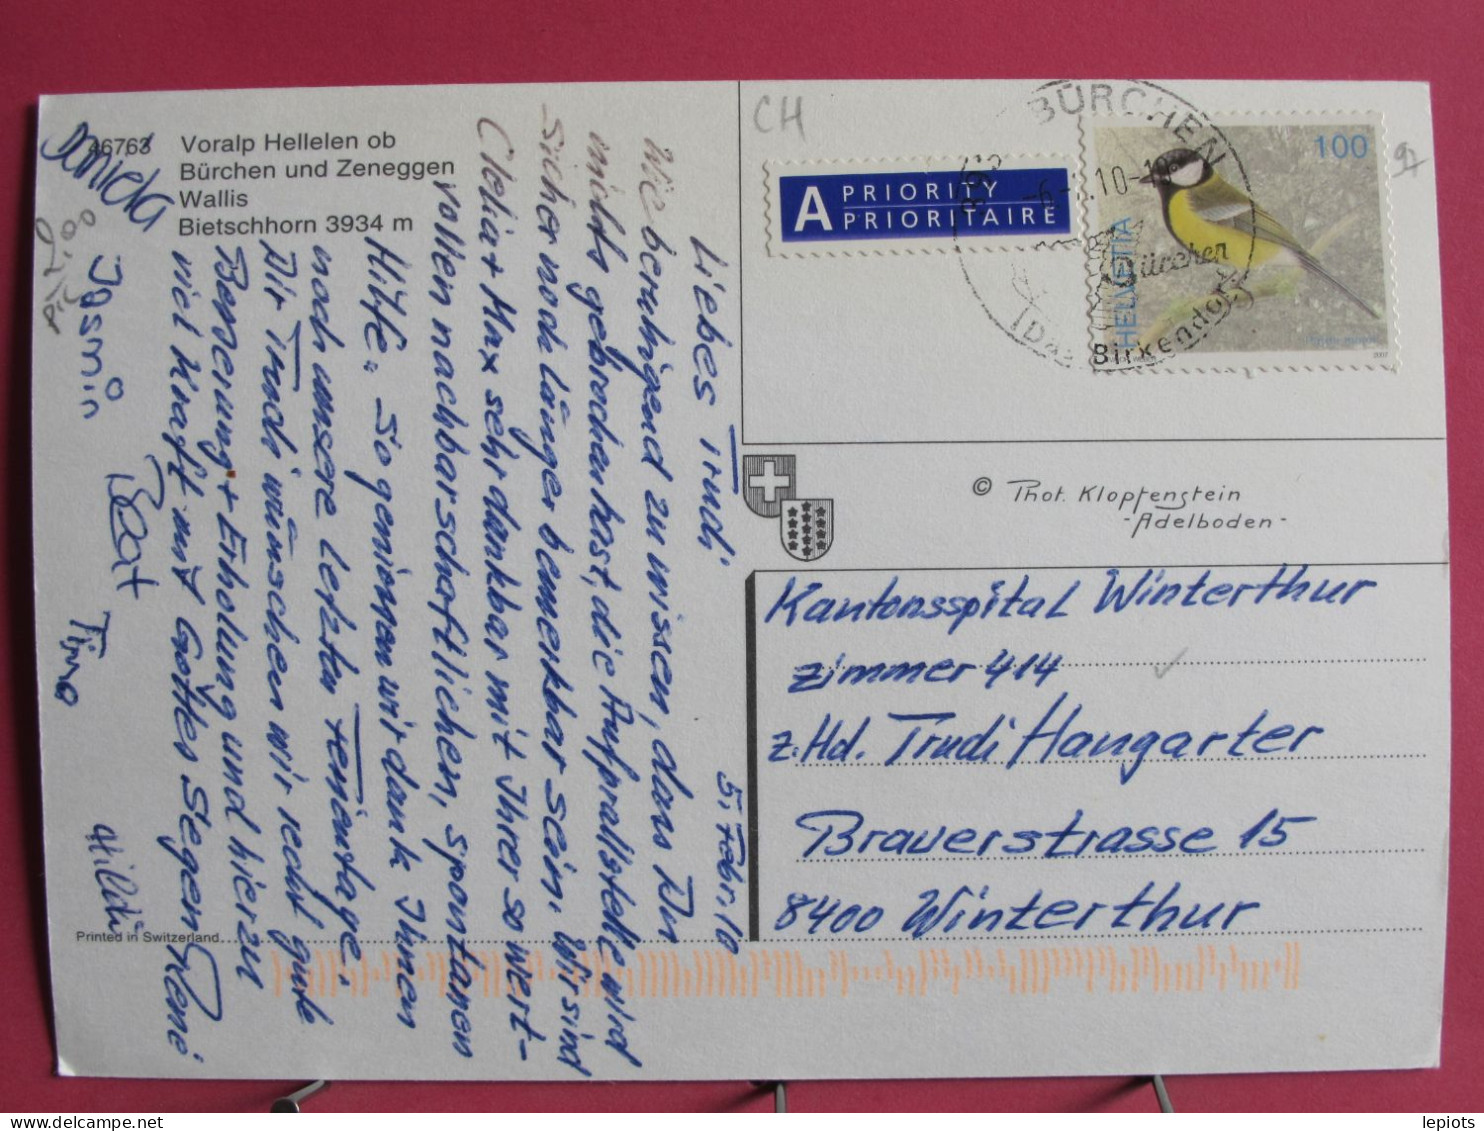 46763
Voralp Hellelen ob
Bürchen und Zeneggen
Wallis
Bietschhorn 3934 m
CH
A PRIORITY
PRIORITAIRE
BÜRCHEN
6
.10-
Bürchen
Birkendorf
100
HELVETIA
2007
97
Liebes Trudi
5. Febr. 10
Wie beruhigend zu wissen, dass Du
nichts gebrochen hast, die Aufprallstelle wird
sicher noch länger bemerkbar sein. Wir sind
Clelia + Max sehr dankbar mit Ihrer so wert-
vollen nachbarschaftlichen, spontanen
Hilfe. So geniessen wir dank Ihnen
noch unsere letzten Ferientage.
Dir Trudi wünschen wir recht gute
Besserung + Erholung und hierzu
viel Kraft mit Gottes Segen René
Daniela
Jasmin
Beat
Timo
Hildi
© Phot. Klopfenstein
-Adelboden-
Kantonsspital Winterthur
Zimmer 414
z.Hd. Trudi Hangarter
Brauerstrasse 15
8400 Winterthur
Printed in Switzerland
lepiots
delcampe.net